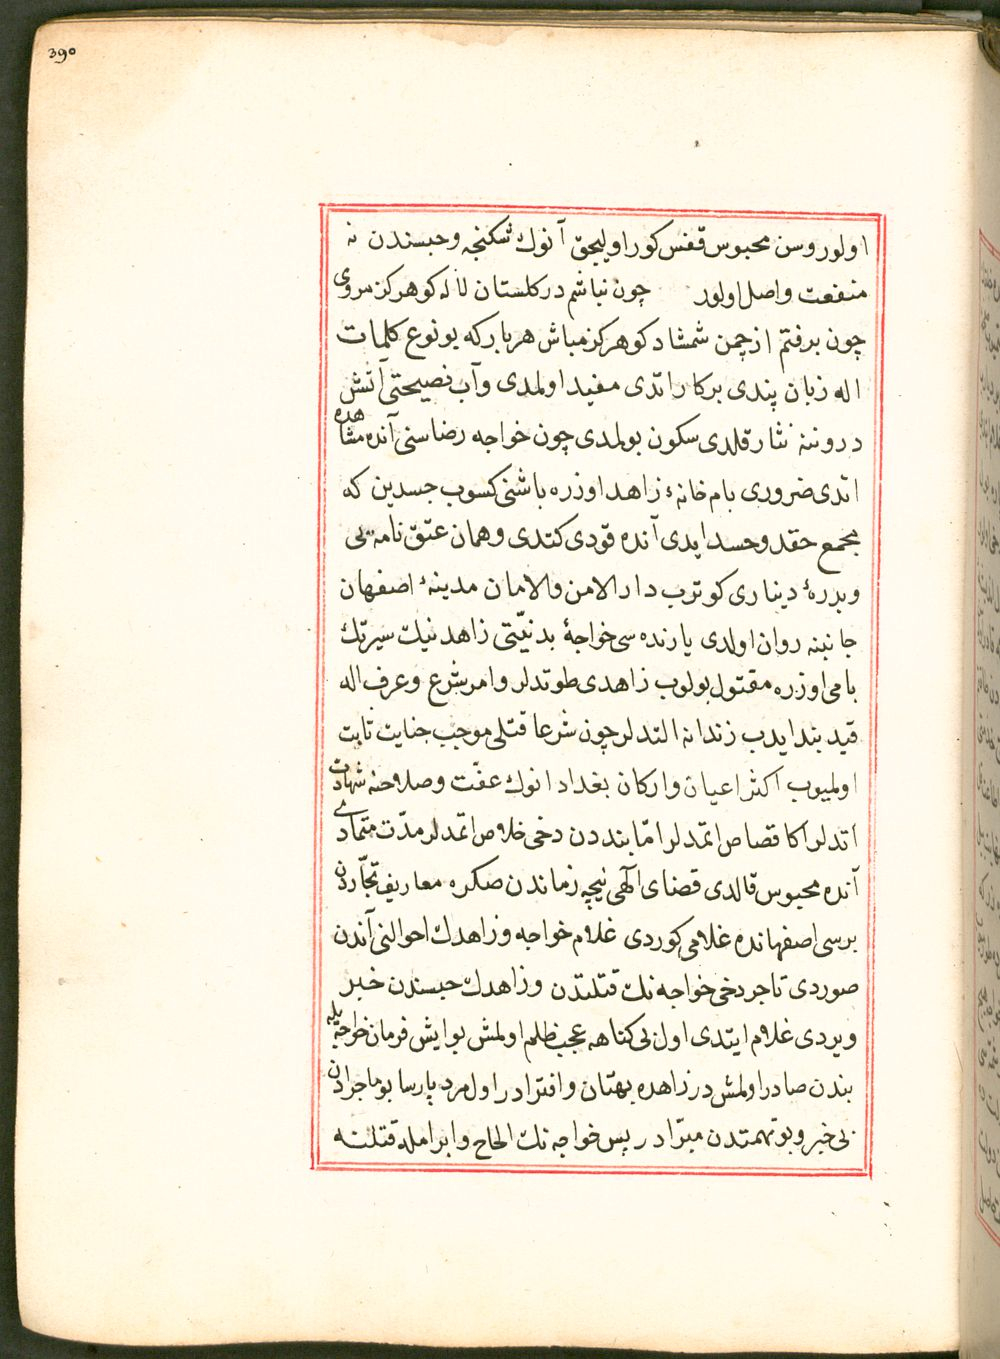 390
اولور وسن محبوس قفس كور اوليجق آنوك شكنجه و حبسندن نه
منفعت واصل اولور چون نباشم در كلستان لاله كو هركز مروى
چون برفتم از چمن شمشاد كو هركز مباش هربار كه بو نوع كلمات
اله زبان پندى بركار اتدى مفيد اولمدى وآب نصيحتى آتش
دروننه نثار قلدى سكون بولمدى چون خواجه رضاسنى آنده مشاهده
اتدى ضرورى بام خانهٔ زاهد اوزره باشنى كسوب جسدين كه
مجمع حقد وحسد ايدى آنده قودى كتدى وهمان عتق نامه يى
وبدرهٔ دينارى كوترب دار الامن والامان مدينهٔ اصفهان
جانبنه روان اولدى يارنده سى خواجهٔ بدنيّتى زاهد نيك سيرتك
بامى اوزره مقتول بولوب زاهدى طوتدلر وامر شرع وعرف اله
قيد بند ايدب زندانه التدلر چون شرعا قتلى موجب جنايت ثابت
اولميوب اكثر اعيان واركان بغداد انوك عفّت وصلاحنه شهادت
اتدلر اكا قصاص اتمدلر امّا بنددن دخى خلاص اتمدلر مدّت متمادى
آنده محبوس قالدى قضاى الٓهى نيچه زماندن صكره معاريف تجّاردن
برسى اصفهانده غلامى كوردى غلام خواجه وزاهدك احوالنى آندن
صوردى تاجر دخى خواجه نك قتلندن وزاهدك حبسندن خبر
ويردى غلام ايتدى اول بى كناهه عجب ظلم اولمش بو ايش فرمان خواجه يله
بندن صادر اولمش در زاهده بهتان وافترادر اول مرد پارسا بو ماجرادن
بى خبر وبو تهمتدن مبرّادر پس خواجه نك الحاح وابرامله قتلنه